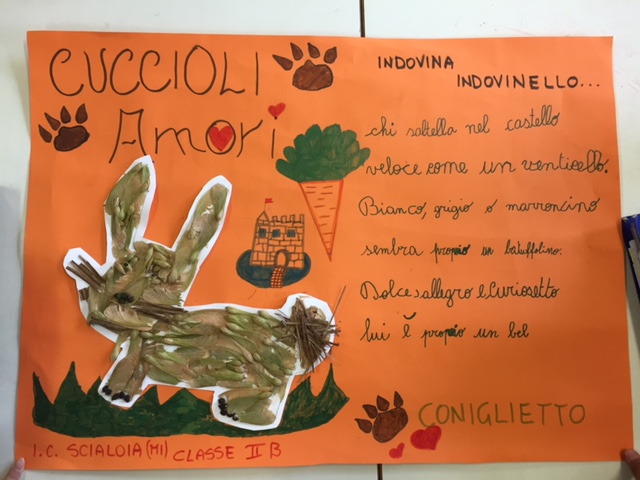 CUCCIOLI
Amori
INDOVINA
INDOVINELLO...
chi saltella nel castello
veloce come un venticello.
Bianco, grigio o marroncino
sembra propio un batuffolino.
Dolce, allegro e curiosetto
lui è propio un bel
CONIGLIETTO
I.C. SCIALOIA (MI) CLASSE II B